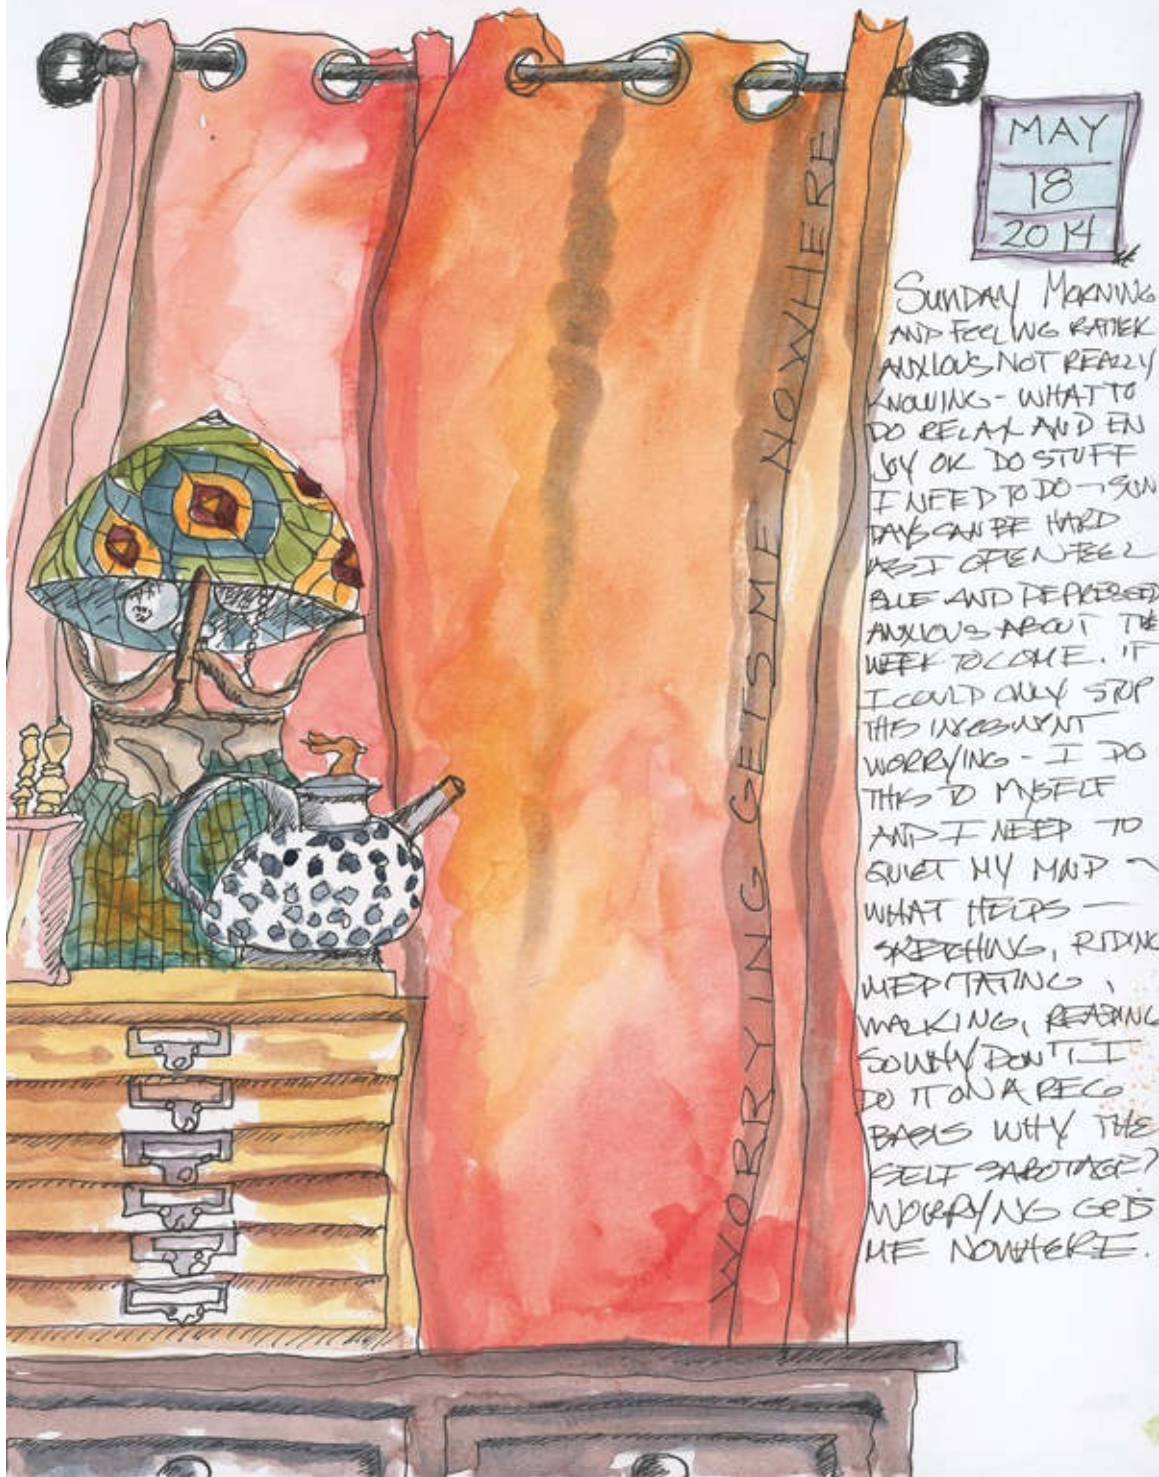 MAY
18
2014
SUNDAY MORNING
AND FEELING RATHER
ANXIOUS NOT REALLY
KNOWING - WHAT TO
DO RELAX AND EN
JOY OR DO STUFF
I NEED TO DO - SUN
DAYS CAN BE HARD
AS I OFTEN FEEL
BLUE AND DEPRESSED
ANXIOUS ABOUT THE
WEEK TO COME. IF
I COULD ONLY STOP
THIS INCESSANT
WORRYING - I DO
THIS TO MYSELF
AND I NEED TO
QUIET MY MIND -
WHAT HELPS -
SKETCHING, RIDING
MEDITATING,
WALKING, READING
SO WHY DON'T I
DO IT ON A REG
BASIS WHY THE
SELF SABOTAGE?
WORRYING GETS
ME NOWHERE.
WORRYING GETS ME NOWHERE